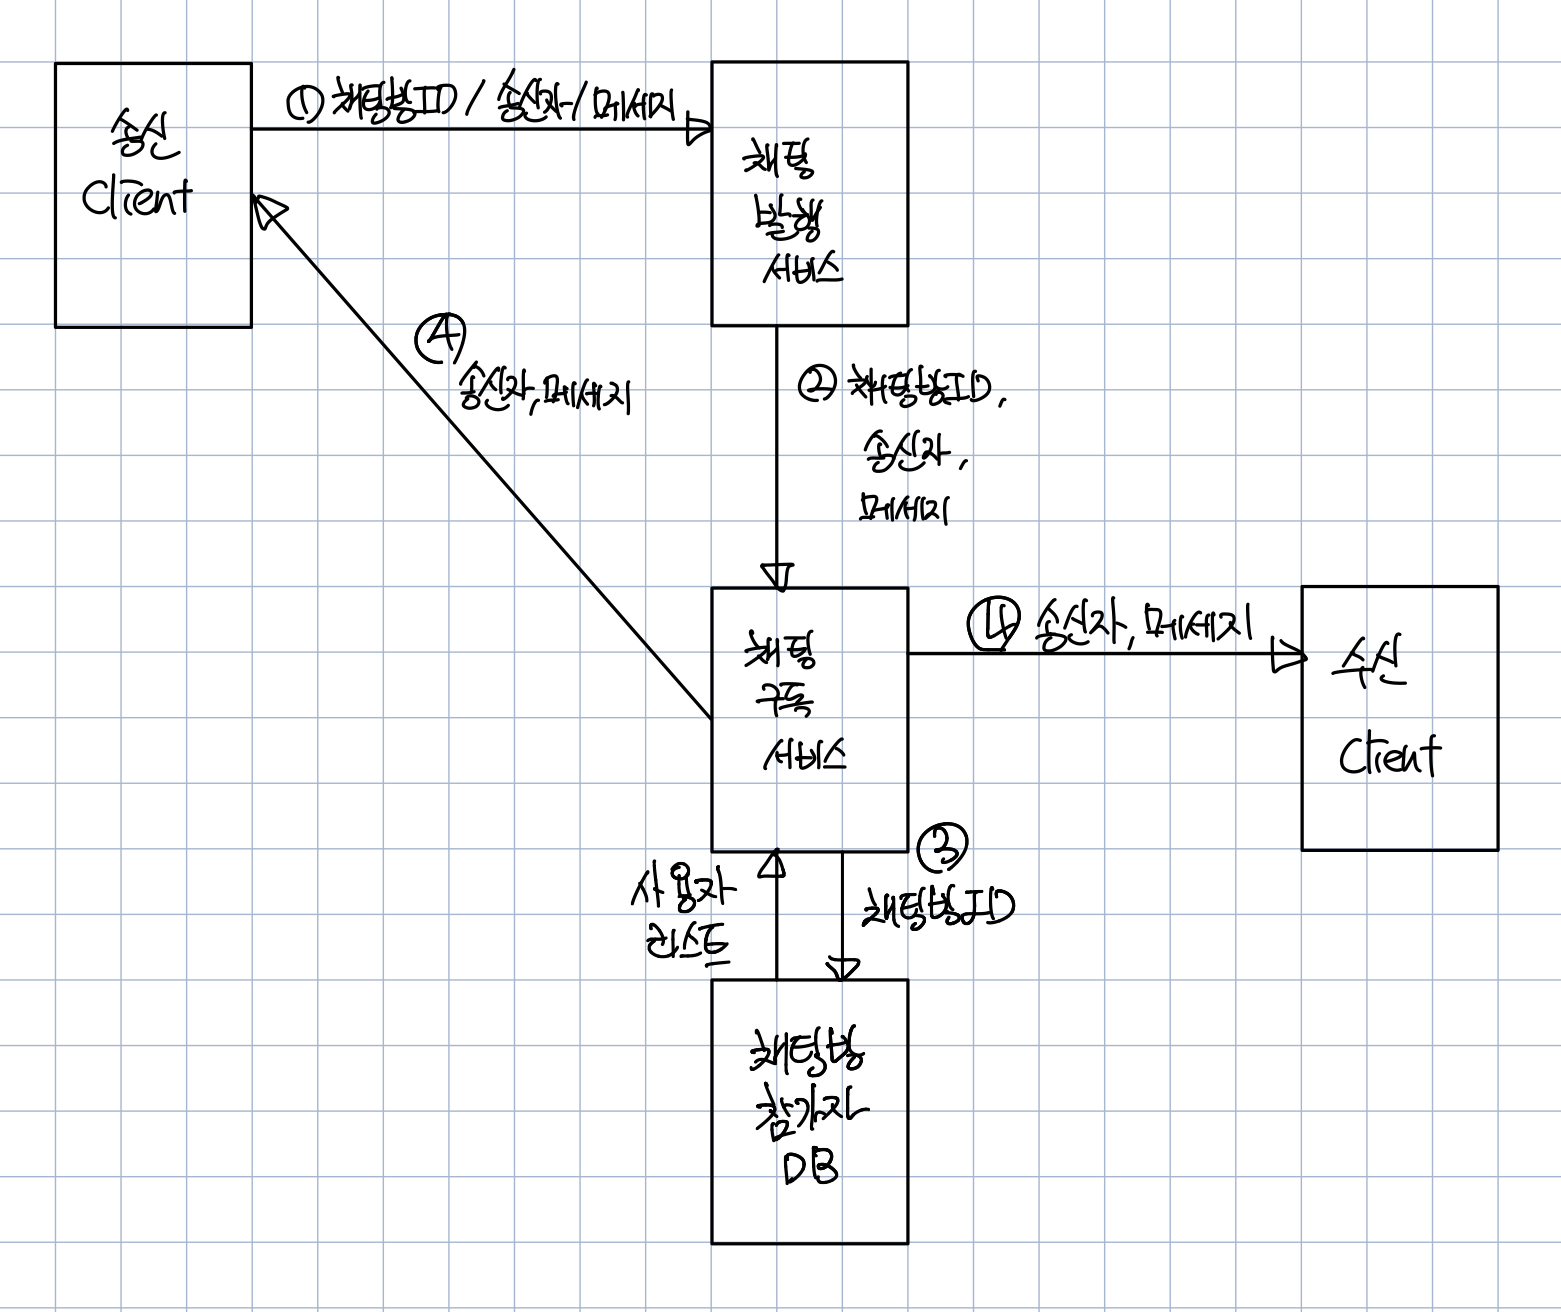 송신
Client
① 채팅방ID / 송신자/메세지
채팅
발행
서비스
④
송신자,메세지
② 채팅방ID,
송신자,
메세지
채팅
구독
서비스
④ 송신자,메세지
수신
Client
사용자
리스트
③
채팅방ID
채팅방
참가자
DB